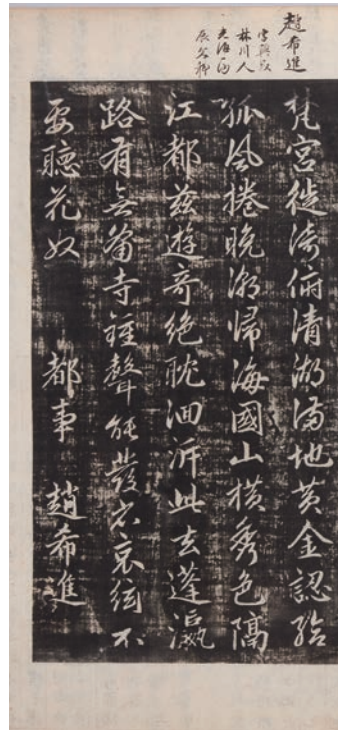 趙希進
林川人
梵宮徙倚俯清湖滿地黃金認給
孤風捲晚潮歸海國山橫秀色隔
江都茲遊奇絕耽洄泝此去蓬瀛
路有無蕭寺鐘聲能發省哀絃不
要聽花奴 都事 趙希進